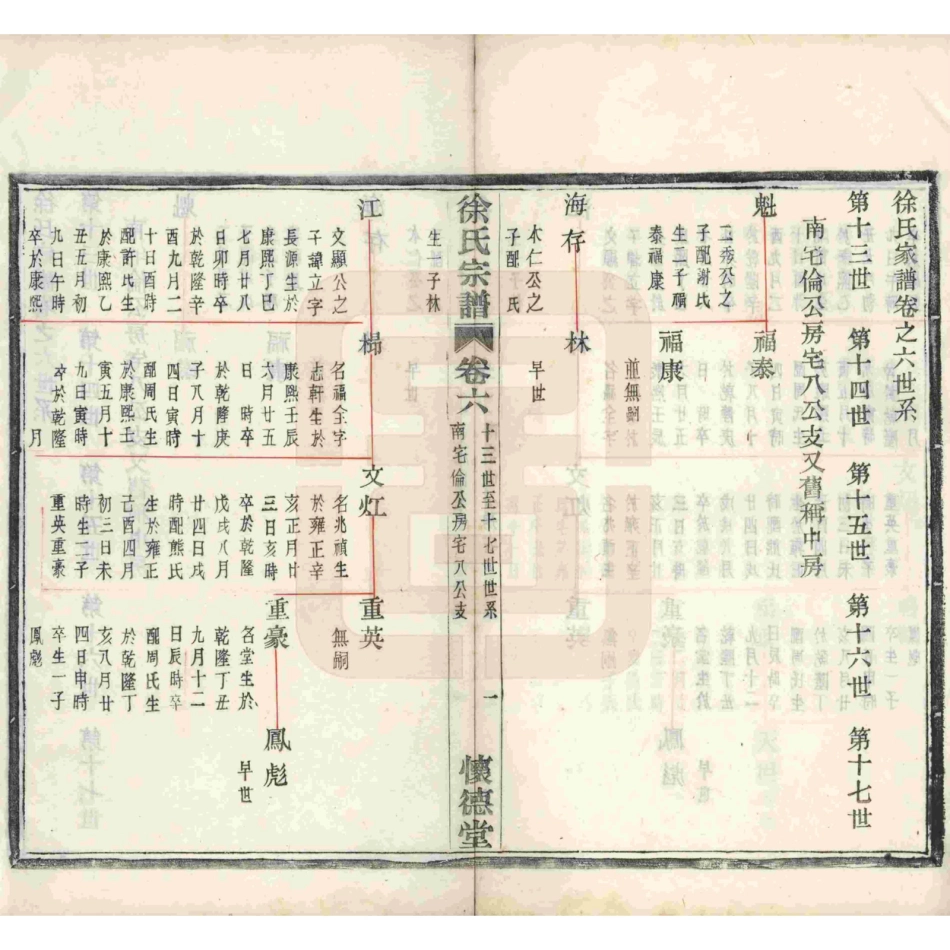 徐氏家譜卷之六世系
第十三世 第十四世 第十五世 第十六世 第十七世
南宅倫公房宅八公支又舊稱中房
魁
公之
子配謝氏
生二子福
泰福康
福泰
福康
並無嗣
海存
木仁公之
子配 氏
生一子林
林
早世
徐氏宗譜 卷六 十三世至十七世世系 一 懷德堂
南宅倫公房宅八公支
江
文顯公之
子諱立字
長源生於
康熙丁巳
七月廿八
日卯時卒
於乾隆辛
酉九月二
十日酉時
配許氏生
於康熙乙
丑五月初
九日午時
卒於康熙
梯
名福全字
志軒生於
康熙壬辰
六月廿五
日 時卒
於乾隆庚
子八月十
四日寅時
配周氏生
於康熙壬
寅五月十
九日寅時
卒於乾隆
月
文灴
名兆禎生
於雍正辛
亥正月廿
三日亥時
卒於乾隆
戊戌八月
廿四日戌
時配熊氏
生於雍正
己酉四月
初三日未
時生二子
重英重豪
重英
無嗣
重豪
名堂生於
乾隆丁丑
九月十二
日辰時卒
配周氏生
於乾隆丁
亥八月廿
四日申時
卒生一子
鳳彪
鳳彪
早世